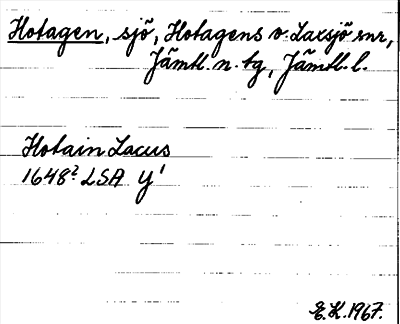 Hotagen, sjö, Hotagens o. Laxsjö snr,
Jämtl. n. tg, Jämtl. l.
Hotain Lacus
1648? LSA Y'
E.K. 1967.